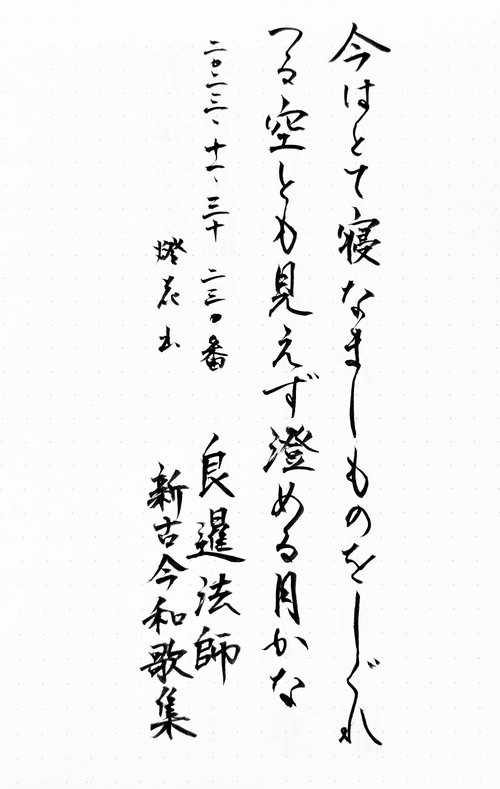 今はとて寝なましものをしぐれ
つる空とも見えず澄める月かな
二〇二三、十一、三十 二三〇番
良暹法師
燈花
新古今和歌集